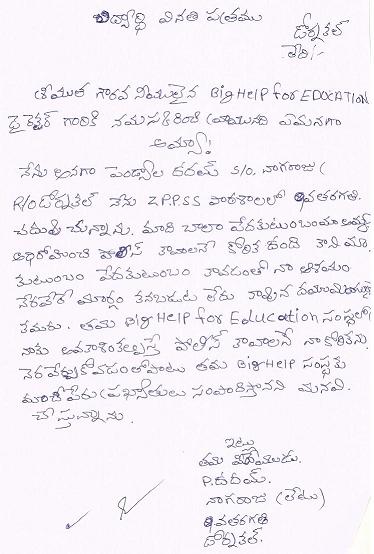 విద్యార్థి వినతి పత్రము
డోర్నకల్
తేది:/-
శ్రీమతి గౌరవ నీయులైన Big HELP for EDUCATION
డైరెక్టర్ గారికి నమస్కరించి వ్రాయునది ఏమనగా
అమ్మా!
నేను అనగా పెండ్యాల ఉదయ్ S/o. నాగరాజు
R/o డోర్నకల్ నేను Z.P.P.SS పాఠశాలలో 9వతరగతి.
చదువు చున్నాను. మాది చాలా పేదకుటుంబం
పోలీస్ కావాలనే కోరిక ఉంది కాని మా
కుటుంబం పేదకుటుంబం కావడంతో నా ఆశయం
నెరవేరే మార్గం కనబడుట లేదు కావున దయచేసి
తమరు. తమ Big Help for Education సంస్థలో
నాకు అవకాశంకల్పిస్తే పోలీస్ కావాలనే నా కోరికను
నెరవేర్చుకోవడంతోపాటు తమ Big Help సంస్థకు
మంచి పేరు ప్రఖ్యాతులు సంపాదిస్తానని మనవి.
చేస్తున్నాను.
ఇట్లు
తమ విధేయుడు.
P. ఉదయ్.
నాగరాజు (లేటు)
9వతరగతి
డోర్నకల్.